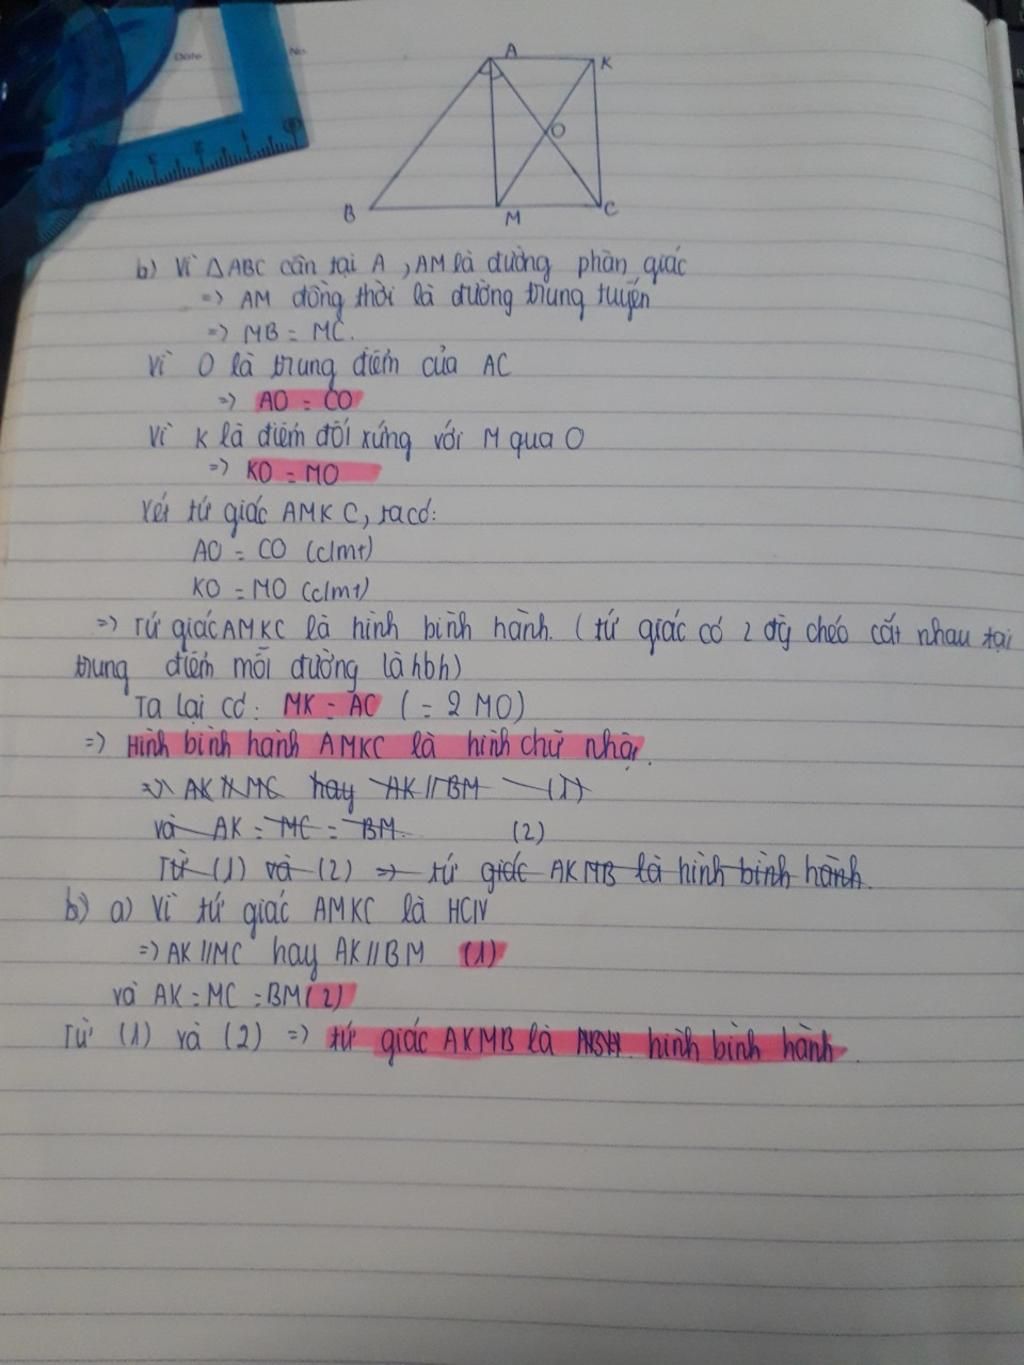 Date
No.
A
K
O
B
M
C
b) Vì △ABC cân tại A, AM là đường phân giác
=> AM đồng thời là đường trung tuyến
=> MB = MC.
Vì O là trung điểm của AC
=> AO = CO
Vì K là điểm đối xứng với M qua O
=> KO = MO
Xét tứ giác AMKC, ta có:
AO = CO (c/mt)
KO = MO (c/mt)
=> Tứ giác AMKC là hình bình hành. (tứ giác có 2 đg chéo cắt nhau tại
trung điểm mỗi đường là hbh)
Ta lại có: MK = AC (= 2 MO)
=> Hình bình hành AMKC là hình chữ nhật.
=> AK // MC hay AK // BM (1)
và AK = MC = BM. (2)
Từ (1) và (2) => tứ giác AKMB là hình bình hành.
b) a) Vì tứ giác AMKC là HCN
=> AK // MC hay AK // BM (1)
và AK = MC = BM (2)
Từ (1) và (2) => tứ giác AKMB là hình bình hành.